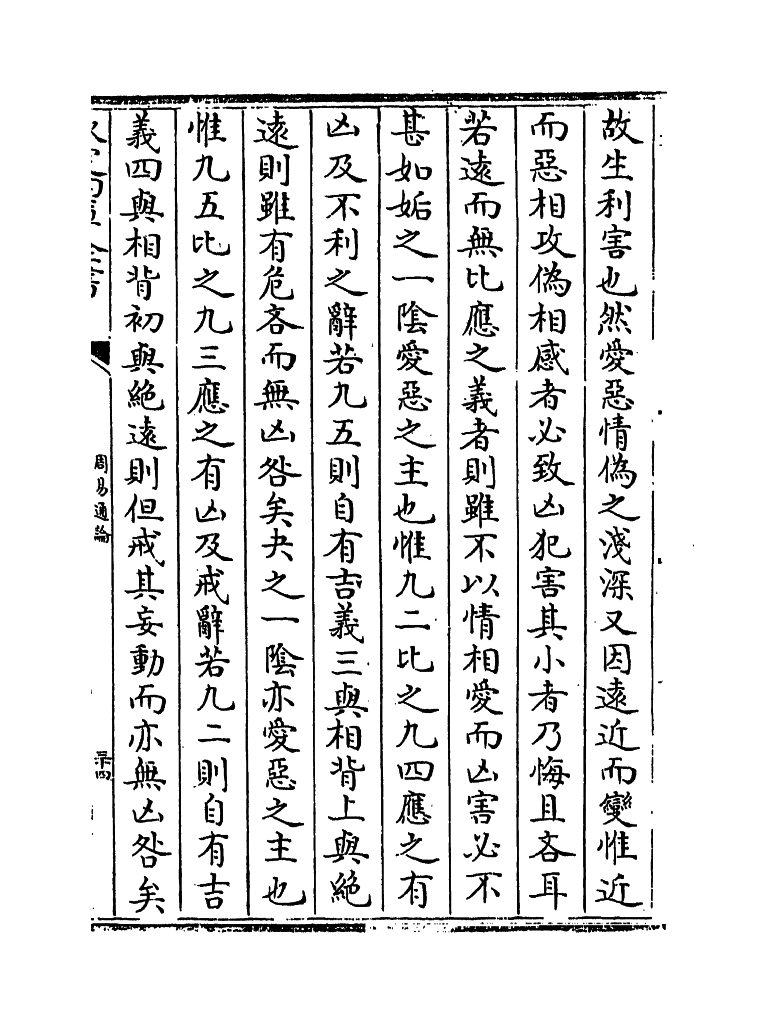 故生利害也然愛惡情偽之淺深又因逺近而變惟近
而惡相攻偽相感者必致凶犯害其小者乃悔且吝耳
若逺而無比應之義者則雖不以情相愛而凶害必不
甚如姤之一陰愛惡之主也惟九二比之九四應之有
凶及不利之辭若九五則自有吉義三與相背上與絶
逺則雖有危吝而無凶咎矣夬之一陰亦愛惡之主也
惟九五比之九三應之有凶及戒辭若九二則自有吉
義四與相背初與絶逺則但戒其妄動而亦無凶咎矣
周易通論
三十四